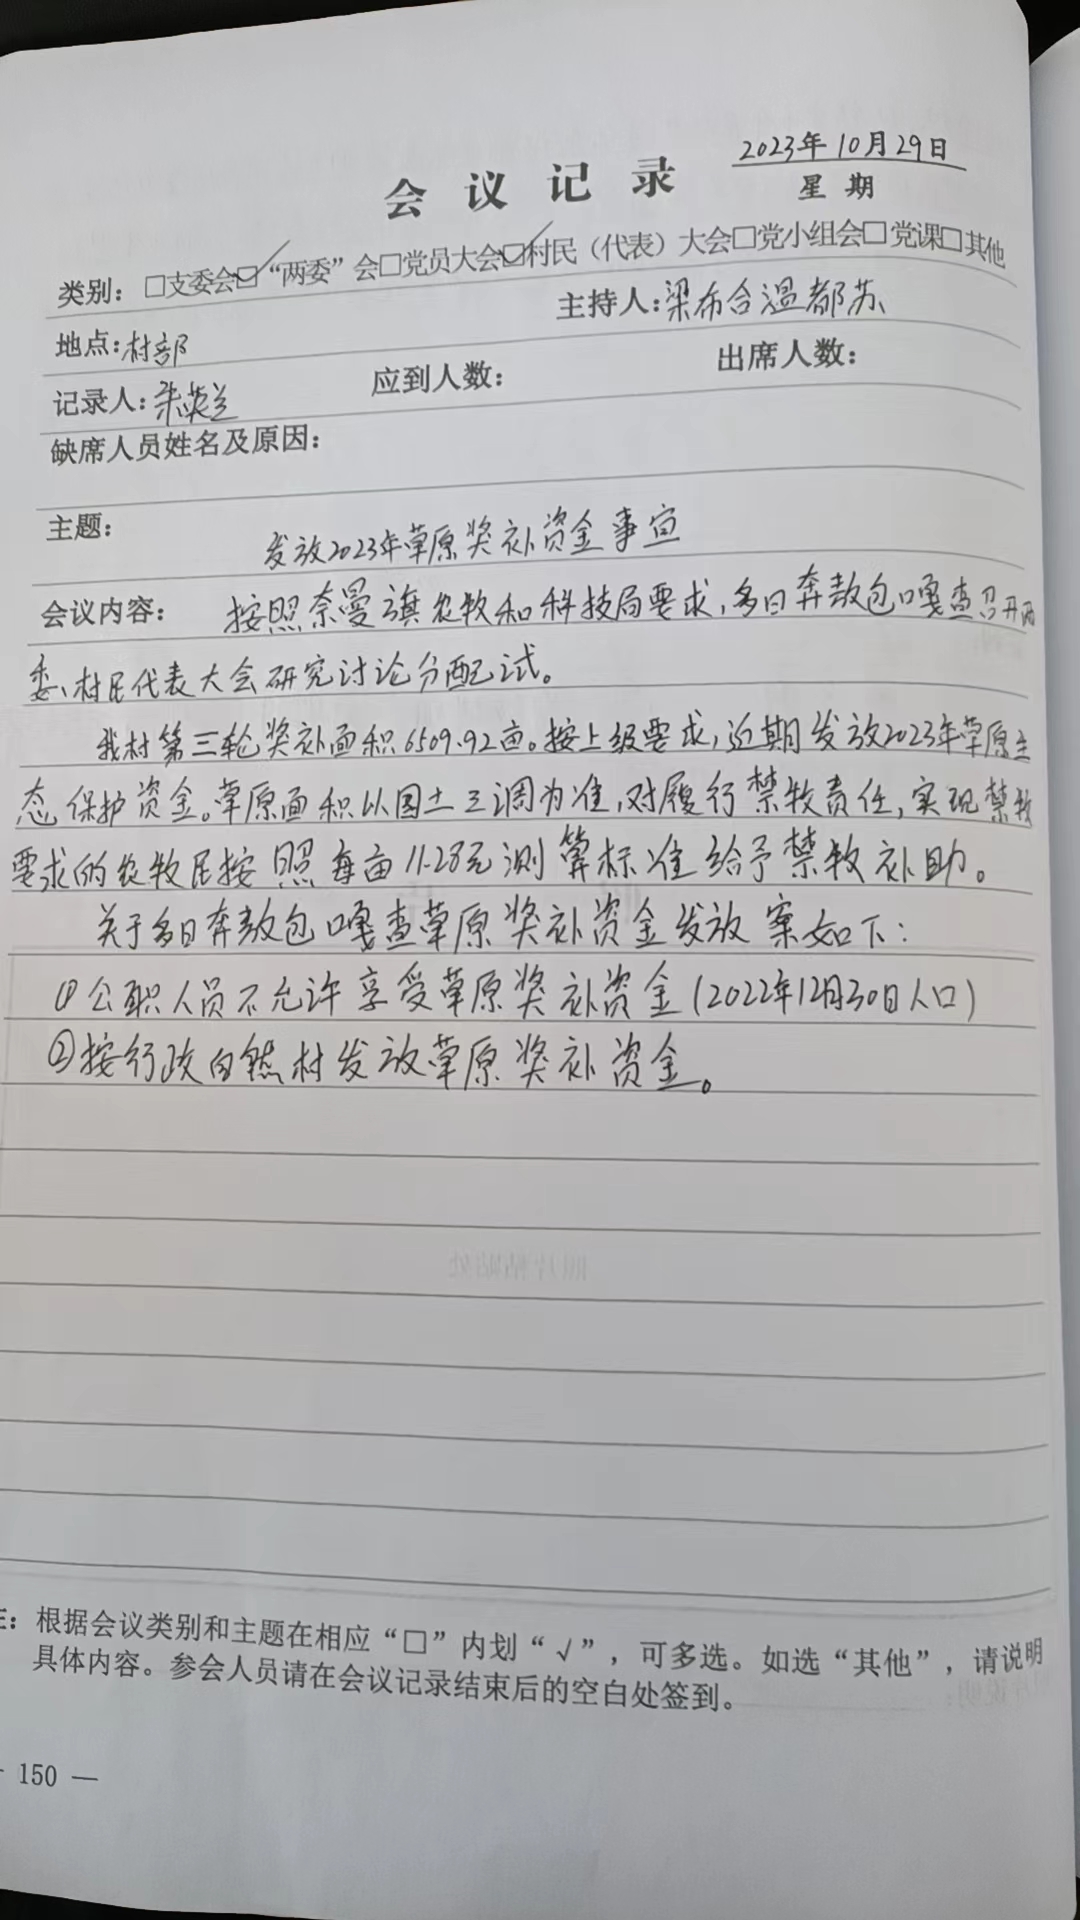 2023年10月29日
会议记录
星期
类别：□支委会☑“两委”会□党员大会☑村民（代表）大会□党小组会□党课□其他
地点：村部
主持人：梁布合温都苏
记录人：朱英兰
应到人数：
出席人数：
缺席人员姓名及原因：
主题：
发放2023年草原奖补资金事宜
会议内容： 按照奈曼旗农牧和科技局要求，多日奔敖包嘎查召开两
委、村民代表大会研究讨论分配试。
我村第三轮奖补面积6509.92亩。按上级要求，近期发放2023年草原生
态保护资金。草原面积以国土三调为准，对履行禁牧责任，实现禁牧
要求的农牧民按照每亩11.28元测算标准给予禁牧补助。
关于多日奔敖包嘎查草原奖补资金发放案如下：
①公职人员不允许享受草原奖补资金(2022年12月30日人口)
②按行政自然村发放草原奖补资金。
照片粘贴处
注：根据会议类别和主题在相应“□”内划“√”，可多选。如选“其他”，请说明
具体内容。参会人员请在会议记录结束后的空白处签到。
150 —